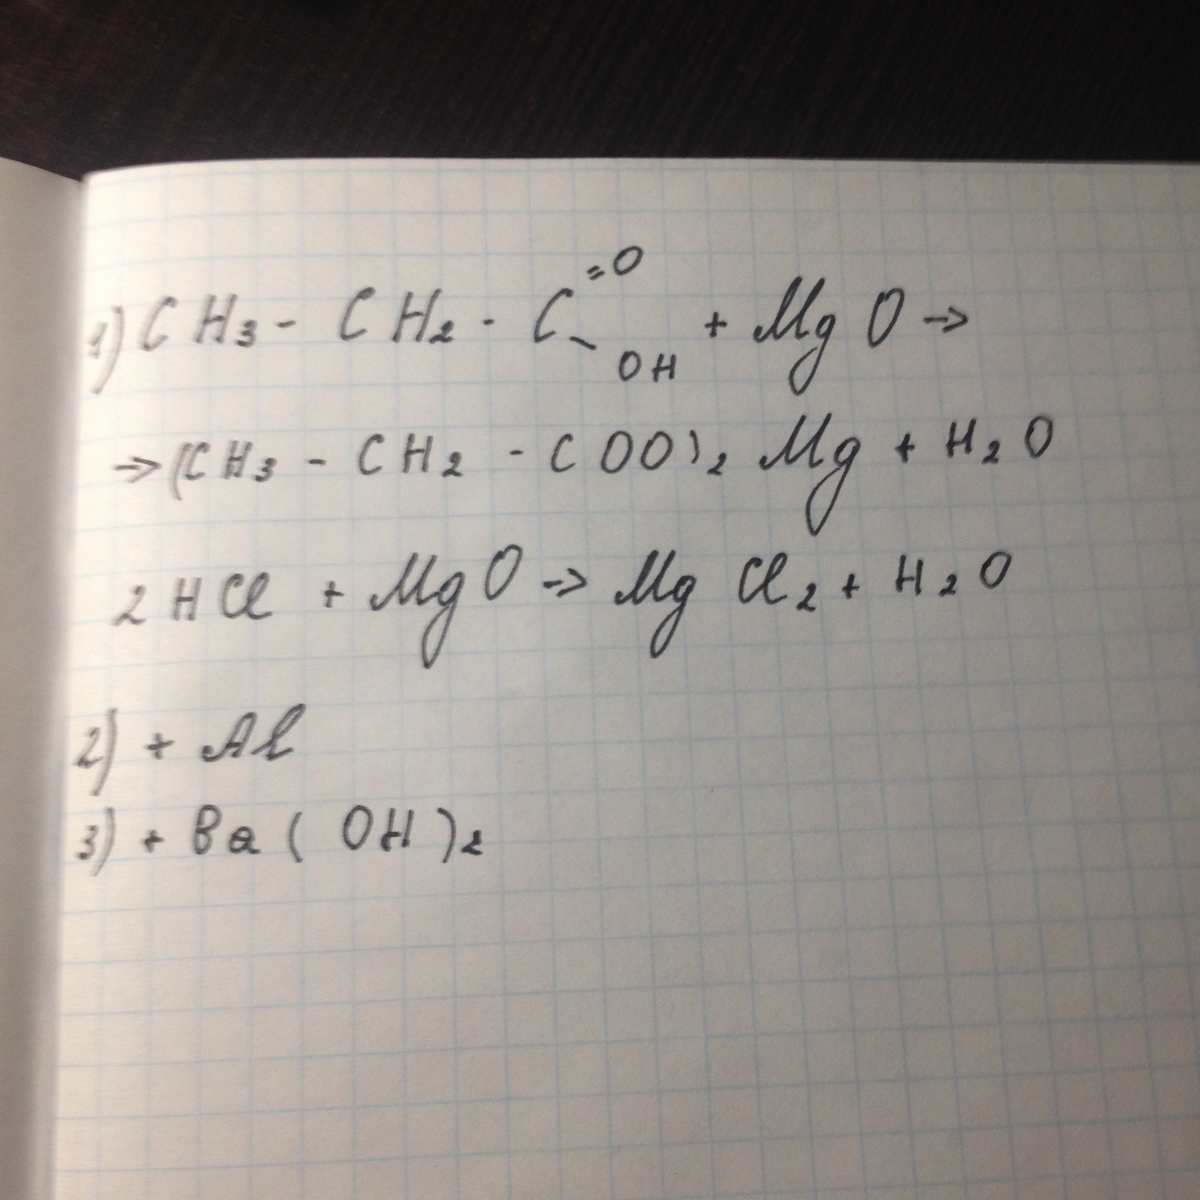 1) CH₃ - CH₂ - C =O - OH + MgO →
→ (CH₃ - CH₂ - COO)₂ Mg + H₂O
2HCl + MgO → MgCl₂ + H₂O
2) + Al
3) + Ba(OH)₂